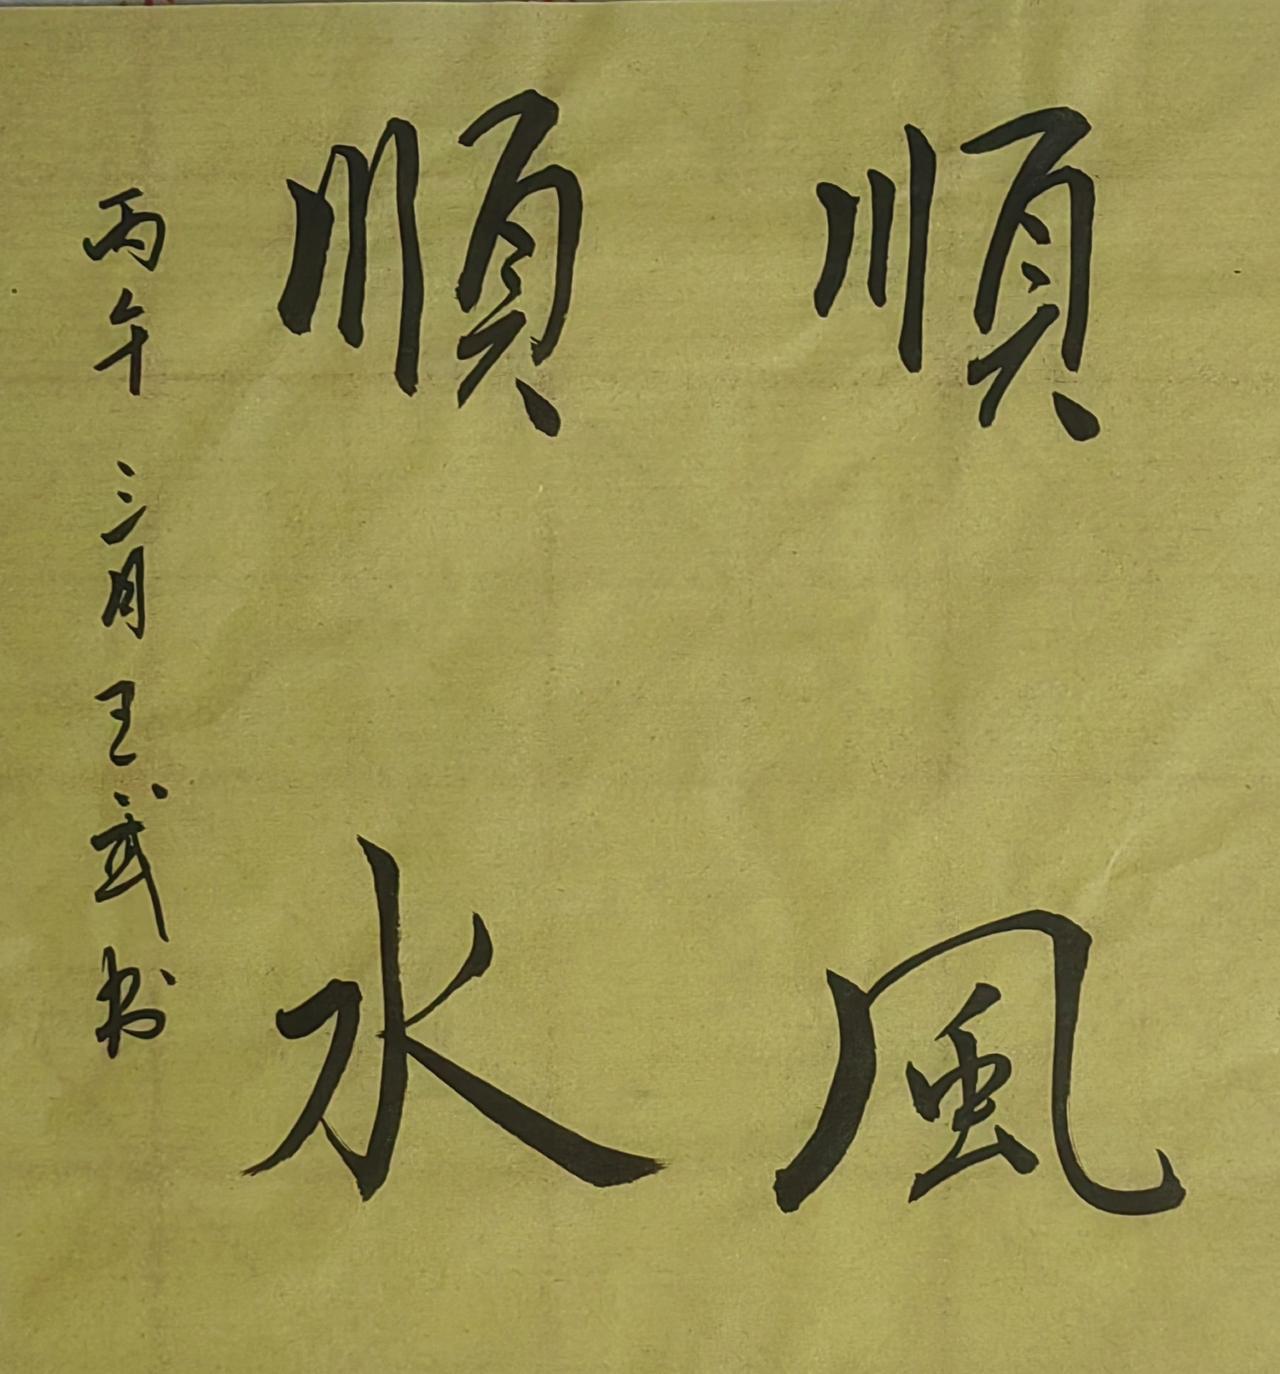 順風
順水
丙午三月王武书